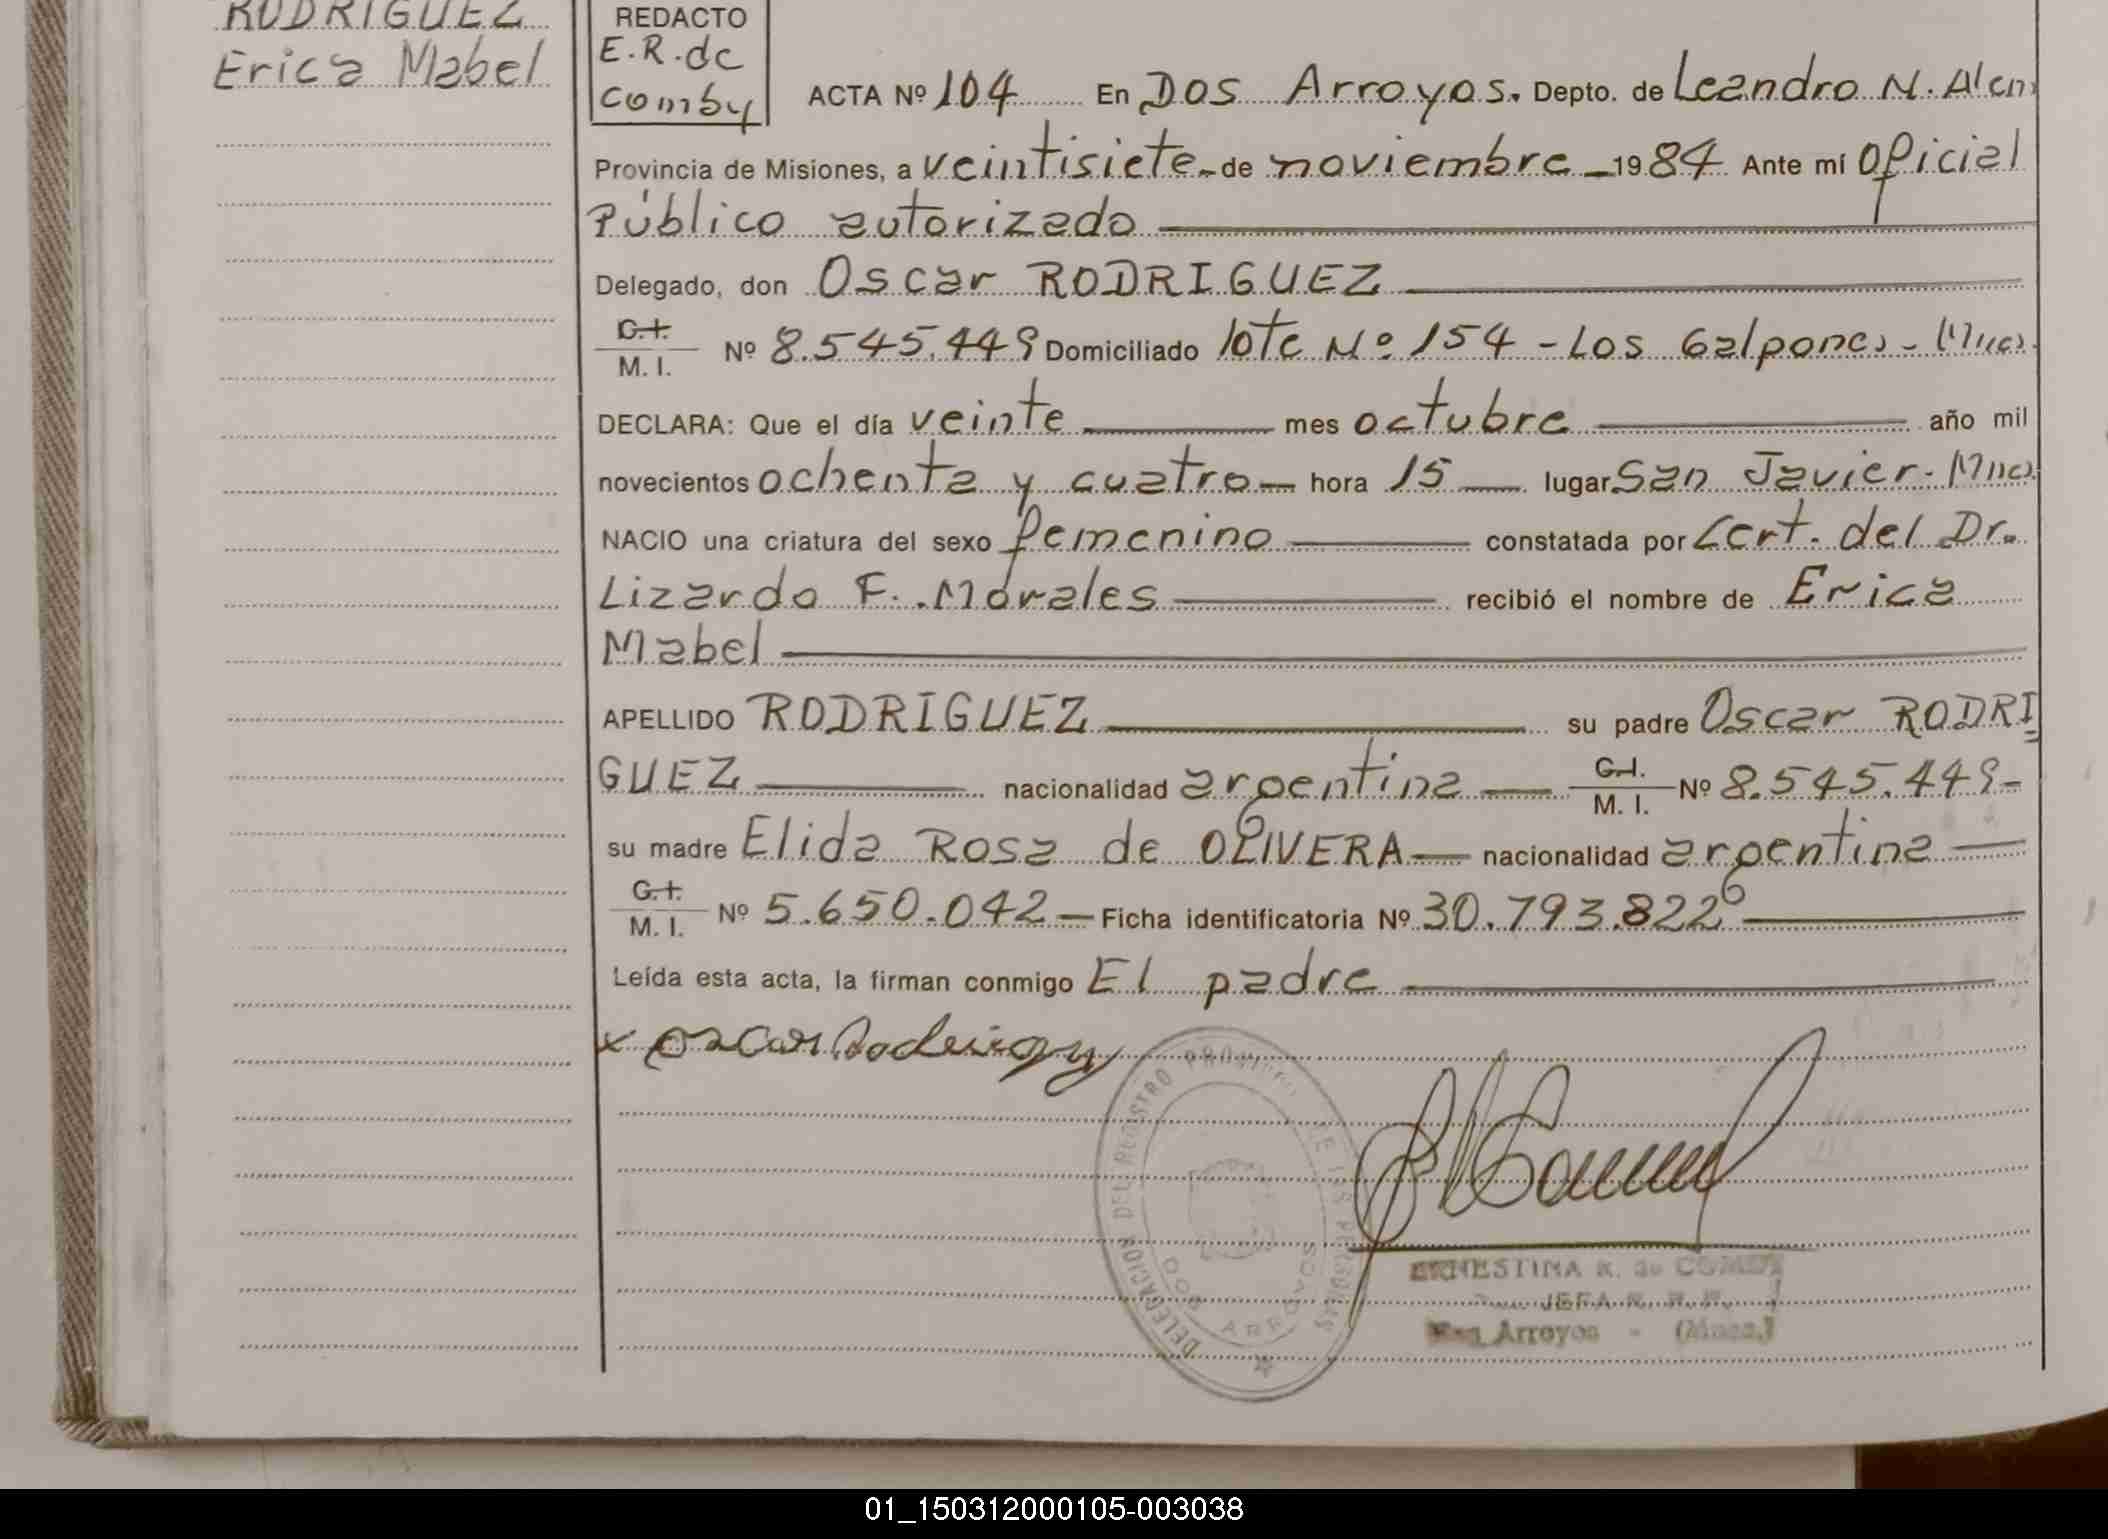 RODRIGUEZ
Erica Mabel
REDACTO
E.R.de
Comby
ACTA Nº 104 En Dos Arroyos. Depto. de Leandro N. Alem
Provincia de Misiones, a veintisiete de noviembre 1984 Ante mí oficial
Público autorizado
Delegado, don Oscar RODRIGUEZ
C.I.
M. I. Nº 8.545.449 Domiciliado lote Nº 154 - Los Galpones - Mnes.
DECLARA: Que el día veinte mes octubre año mil
novecientos ochenta y cuatro hora 15 lugar San Javier - Mnes.
NACIO una criatura del sexo femenino constatada por Cert. del Dr.
Lizardo F. Morales recibió el nombre de Erica
Mabel
APELLIDO RODRIGUEZ su padre Oscar RODRI
GUEZ nacionalidad argentina C.I.
M. I. Nº 8.545.449-
su madre Elida Rosa de OLIVERA nacionalidad argentina
C.I.
M. I. Nº 5.650.042 Ficha identificatoria Nº 30.793.822
Leída esta acta, la firman conmigo El padre
x Oscar Rodriguez
DELEGACION DEL REGISTRO PROVINCIAL DE LAS PERSONAS
DOS ARROYOS
ERNESTINA R. de COMBY
JEFA R. P. P.
Dos Arroyos - (Mnes.)
01_150312000105-003038